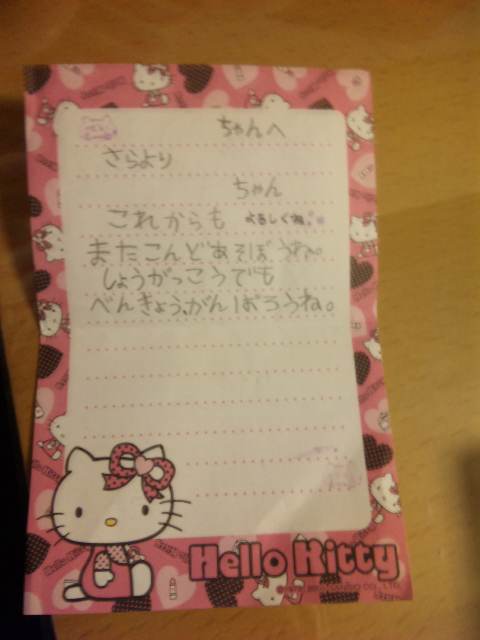 ちゃんへ
さらより
ちゃん
これからも よろしくね。
またこんどあそぼうね。
しょうがっこうでも
べんきょう、がんばろうね。
Hello Kitty